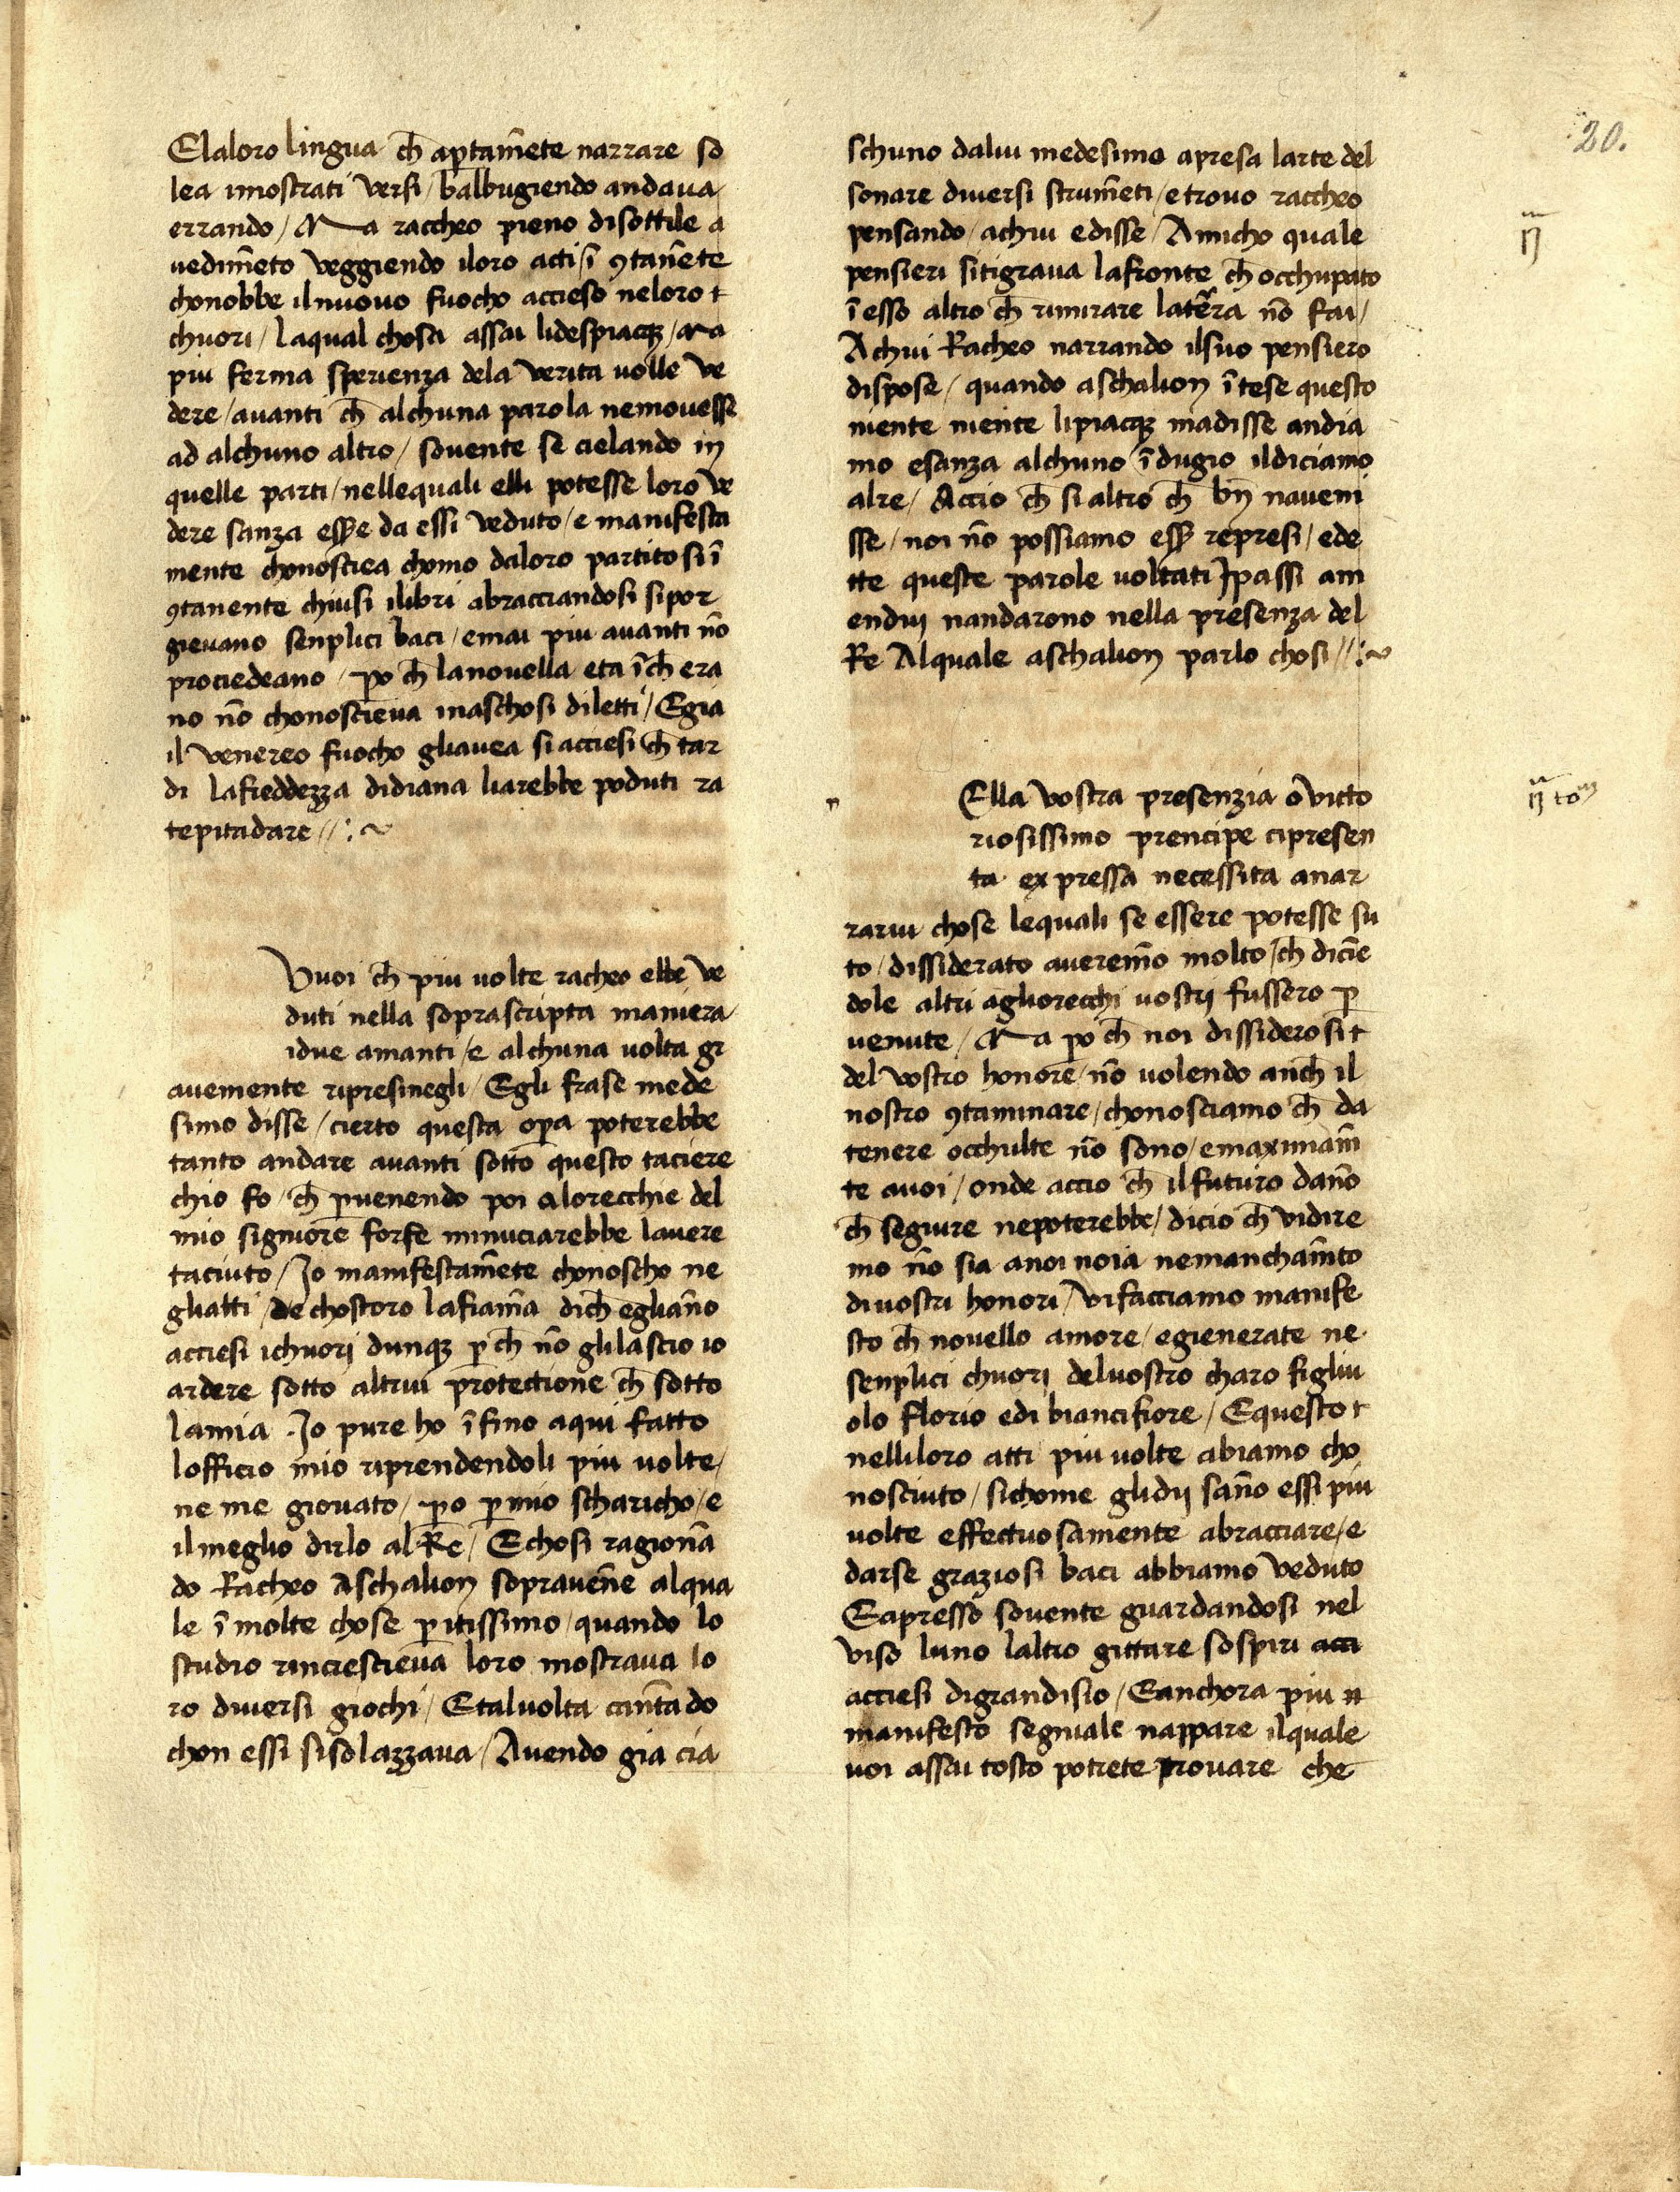 20.
Elaloro lingua ch̄ aptam̄ete narrare so
lea imostrati versi / balbugiendo andaua
errando / Ma raccheo pieno disottile a
uedim̄eto veggiendo iloro acti / ī ꝯtanēte
chonobbe ilnuouo fuocho accieso neloro
chuori / laqual chosa assai lidespiacqꝫ / ma
piu ferma sperienza dela verita uolle ve
dere / auanti ch̄ alchuna parola nemouesse
ad alchuno altro / souente se cielando in
quelle parti / nellequali elli potesse loro ve
dere sanza esse᷑ da essi veduto / e manifesta
mente chonosciea chomo daloro partitosi ī
ꝯtanente chiusi ilibri abracciandosi sipor
gieuano senplici baci / emai piu auanti nō
prociedeano / ꝑo ch̄ lanouella eta īch̄ era
no nō chonoscieua inaschosi diletti / Egia
il venereo fuocho gliauea si acciesi ch̄ tar
di lafreddezza didiana liarebbe poduti ra
tepitadare //:~
Vuoi ch̄ piu uolte racheo ebbe ve
duti nella soprascripta maniera
idue amanti / e alchuna uolta gr
auemente ripresinegli / Egli frase mede
simo disse / cierto questa oꝑa poterebbe
tanto andare auanti sotto questo taciere
chio fo / ch̄ ꝑuenendo poi alorecchie del
mio signiore forse minuciarebbe lauere
taciuto / Io manifestam̄ete chonoscho ne
gliatti / de chostoro lafiam̄a dich̄ egliāno
acciesi ichuorj dunqꝫ ꝑch̄ nō glilascio io
ardere sotto altrui protectione ch̄ sotto
lamia . Io pure ho īfino aqui fatto
lofficio mio riprendendoli piu uolte /
ne me giouato / ꝑo ꝑ mio scharicho / e
ilmeglio dirlo al Re / Echosi ragionā
do Racheo Aschalion soprauēne alqua
le ī molte chose ꝑitissimo / quando lo
studio rincrescieua loro mostraua lo
ro diuersi giochi / Etaluolta cantādo
chon essi sisolazzaua / Auendo gia cia
schuno dalui medesimo apresa larte del
sonare diuersi strum̄eti / e trouo raccheo
pensando / achui edisse / Amicho quale
pensieri sitigraua lafronte ch̄ occhupato
ī esso altro ch̄ rimirare latēra nō fai /
Achui Racheo narrando ilsuo pensiero
dispose / quando aschalion ītese questo
niente niente lipiacqꝫ madisse andia
mo esanza alchuno īdugio ildiciamo
alre / Accio ch̄ si altro ch̄ bn̄ naueni
sse / noi nō possiamo esse᷑ represi / ede
tte queste parole uoltati Ipassi am
enduj nandarono nella presenza del
Re Alquale aschalion parlo chosi //:~
Ella vostra presenzia o victo
riosissimo prencipe cipresen
ta expressa necessita anar
rarui chose lequali se essere potesse su
to / dissiderato aueremo molto / ch̄ diciē
dole altri agliorecchi uostrj fussero ꝑ
uenute / Ma ꝑo ch̄ noi dissiderosi
del vostro honore / nō uolendo anch̄ il
nostro ꝯtaminare / chonosciamo ch̄ da
tenere occhulte nō sono / emaximam̄
te auoi / onde accio ch̄ ilfuturo dāno
ch̄ seguire nepoterebbe / dicio ch̄ vidire
mo nō sia anoi noia nemancham̄to
diuostri honori / vifacciamo manife
sto ch̄ nouello amore / egienerate ne
senplici chuorj deluostro charo figliu
olo florio edi biancifiore / Equesto
nelliloro atti piu uolte abiamo cho
nosciuto / sichome glidij sāno essi piu
uolte effectuosamente abracciare / e
darse graziosi baci abbiamo veduto
Eapresso souente guardandosi nel
viso luno laltro gittare sospiri acci
acciesi digrandisio / Eanchora piu
manifesto segniale nappare ilquale
uoi assai tosto potrete prouare che